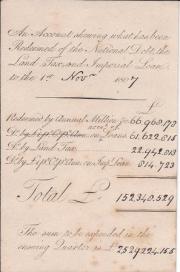 An Account shewing what has been
Redeemed of the National Debt, the
Land Tax, and Imperial Loan
to the 1st Novr 1807
£
Redeemed by Annual Million &c 66,968,173
Do by on Loans 61,622,815
Do by Land Tax 22,942,813
Do by 1 Pr Ct Pr Ann on Imp Loan 814,723
Total £ 152,340,529
The sum to be expended in the
ensuing Quarter is £2529224.15.5